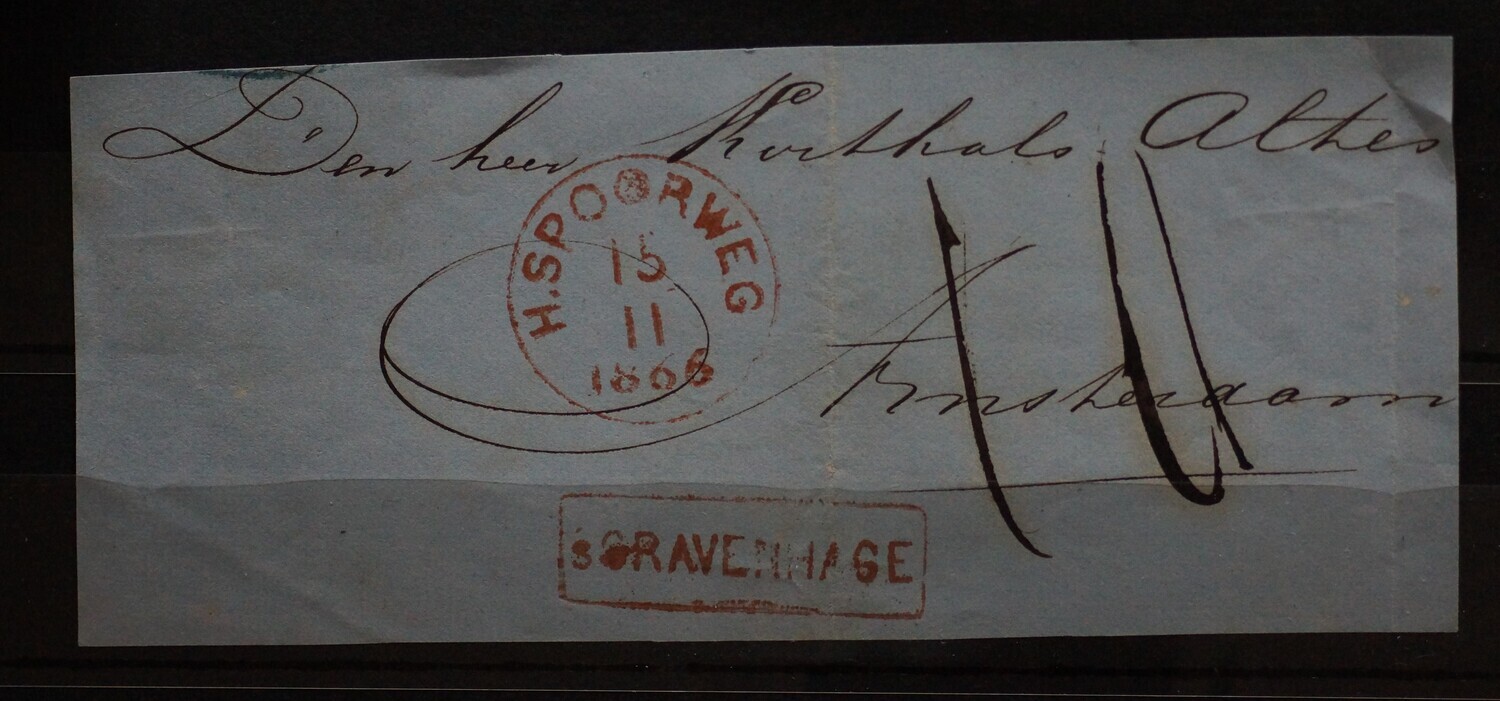 Den heer Korthals Althes
H.SPOORWEG
15
11
1866
Amsterdam
sGRAVENHAGE